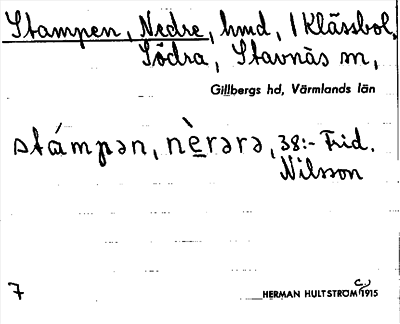 Stampen, Nedre, hmd, i Klässbol,
Södra, Stavnäs sn,
Gillbergs hd, Värmlands län
stámpən, nèrərə, 38:- Frid.
Nilsson
7
HERMAN HULTSTRÖM 1915